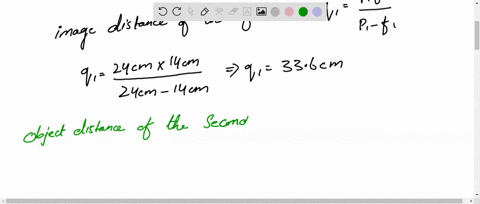 image distance of the
q₁ = P₁ - f₁
q₁ = 24cm × 14cm / 24cm - 14cm ⇒ q₁ = 33.6cm
object distance of the Second